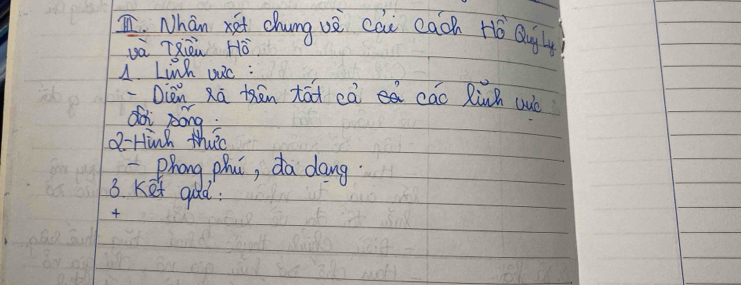 III. Nhân xét chung về cải cách Hồ Quý Ly
và Triều Hồ
1. Lĩnh vực :
- Diễn ra trên tất cả các lĩnh vực
đời sống.
2-Hình thức
- phong phú, đa dạng.
3. Kết quả:
+